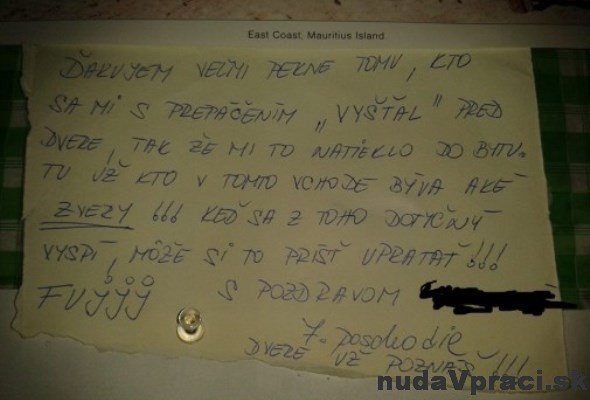 East Coast, Mauritius Island
ĎAKUJEM VEĽMI PEKNE TOMU, KTO
SA MI S PREPÁČENÍM „VYŠŤAL" PRED
DVERE, TAK ŽE MI TO NATIEKLO DO BYTU.
TU UŽ KTO V TOMTO VCHODE BÝVA AKÉ
ZVERY !!! KEĎ SA Z TOHO DOTYČNÝ
VYSPÍ, MÔŽE SI TO PRÍSŤ UPRATAŤ !!!
FUJJJ S POZDRAVOM
7. poschodie
DVERE UŽ POZNÁŠ !!!
nudaVpraci.sk